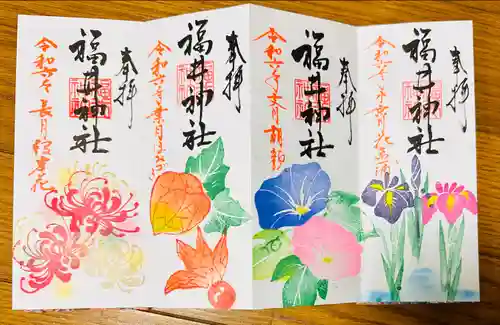 奉拝
福井神社
令和六年 水無月 花菖蒲
奉拝
福井神社
令和六年 文月 朝顔
奉拝
福井神社
令和六年 葉月 ほおずき
奉拝
福井神社
令和六年 長月 彼岸花